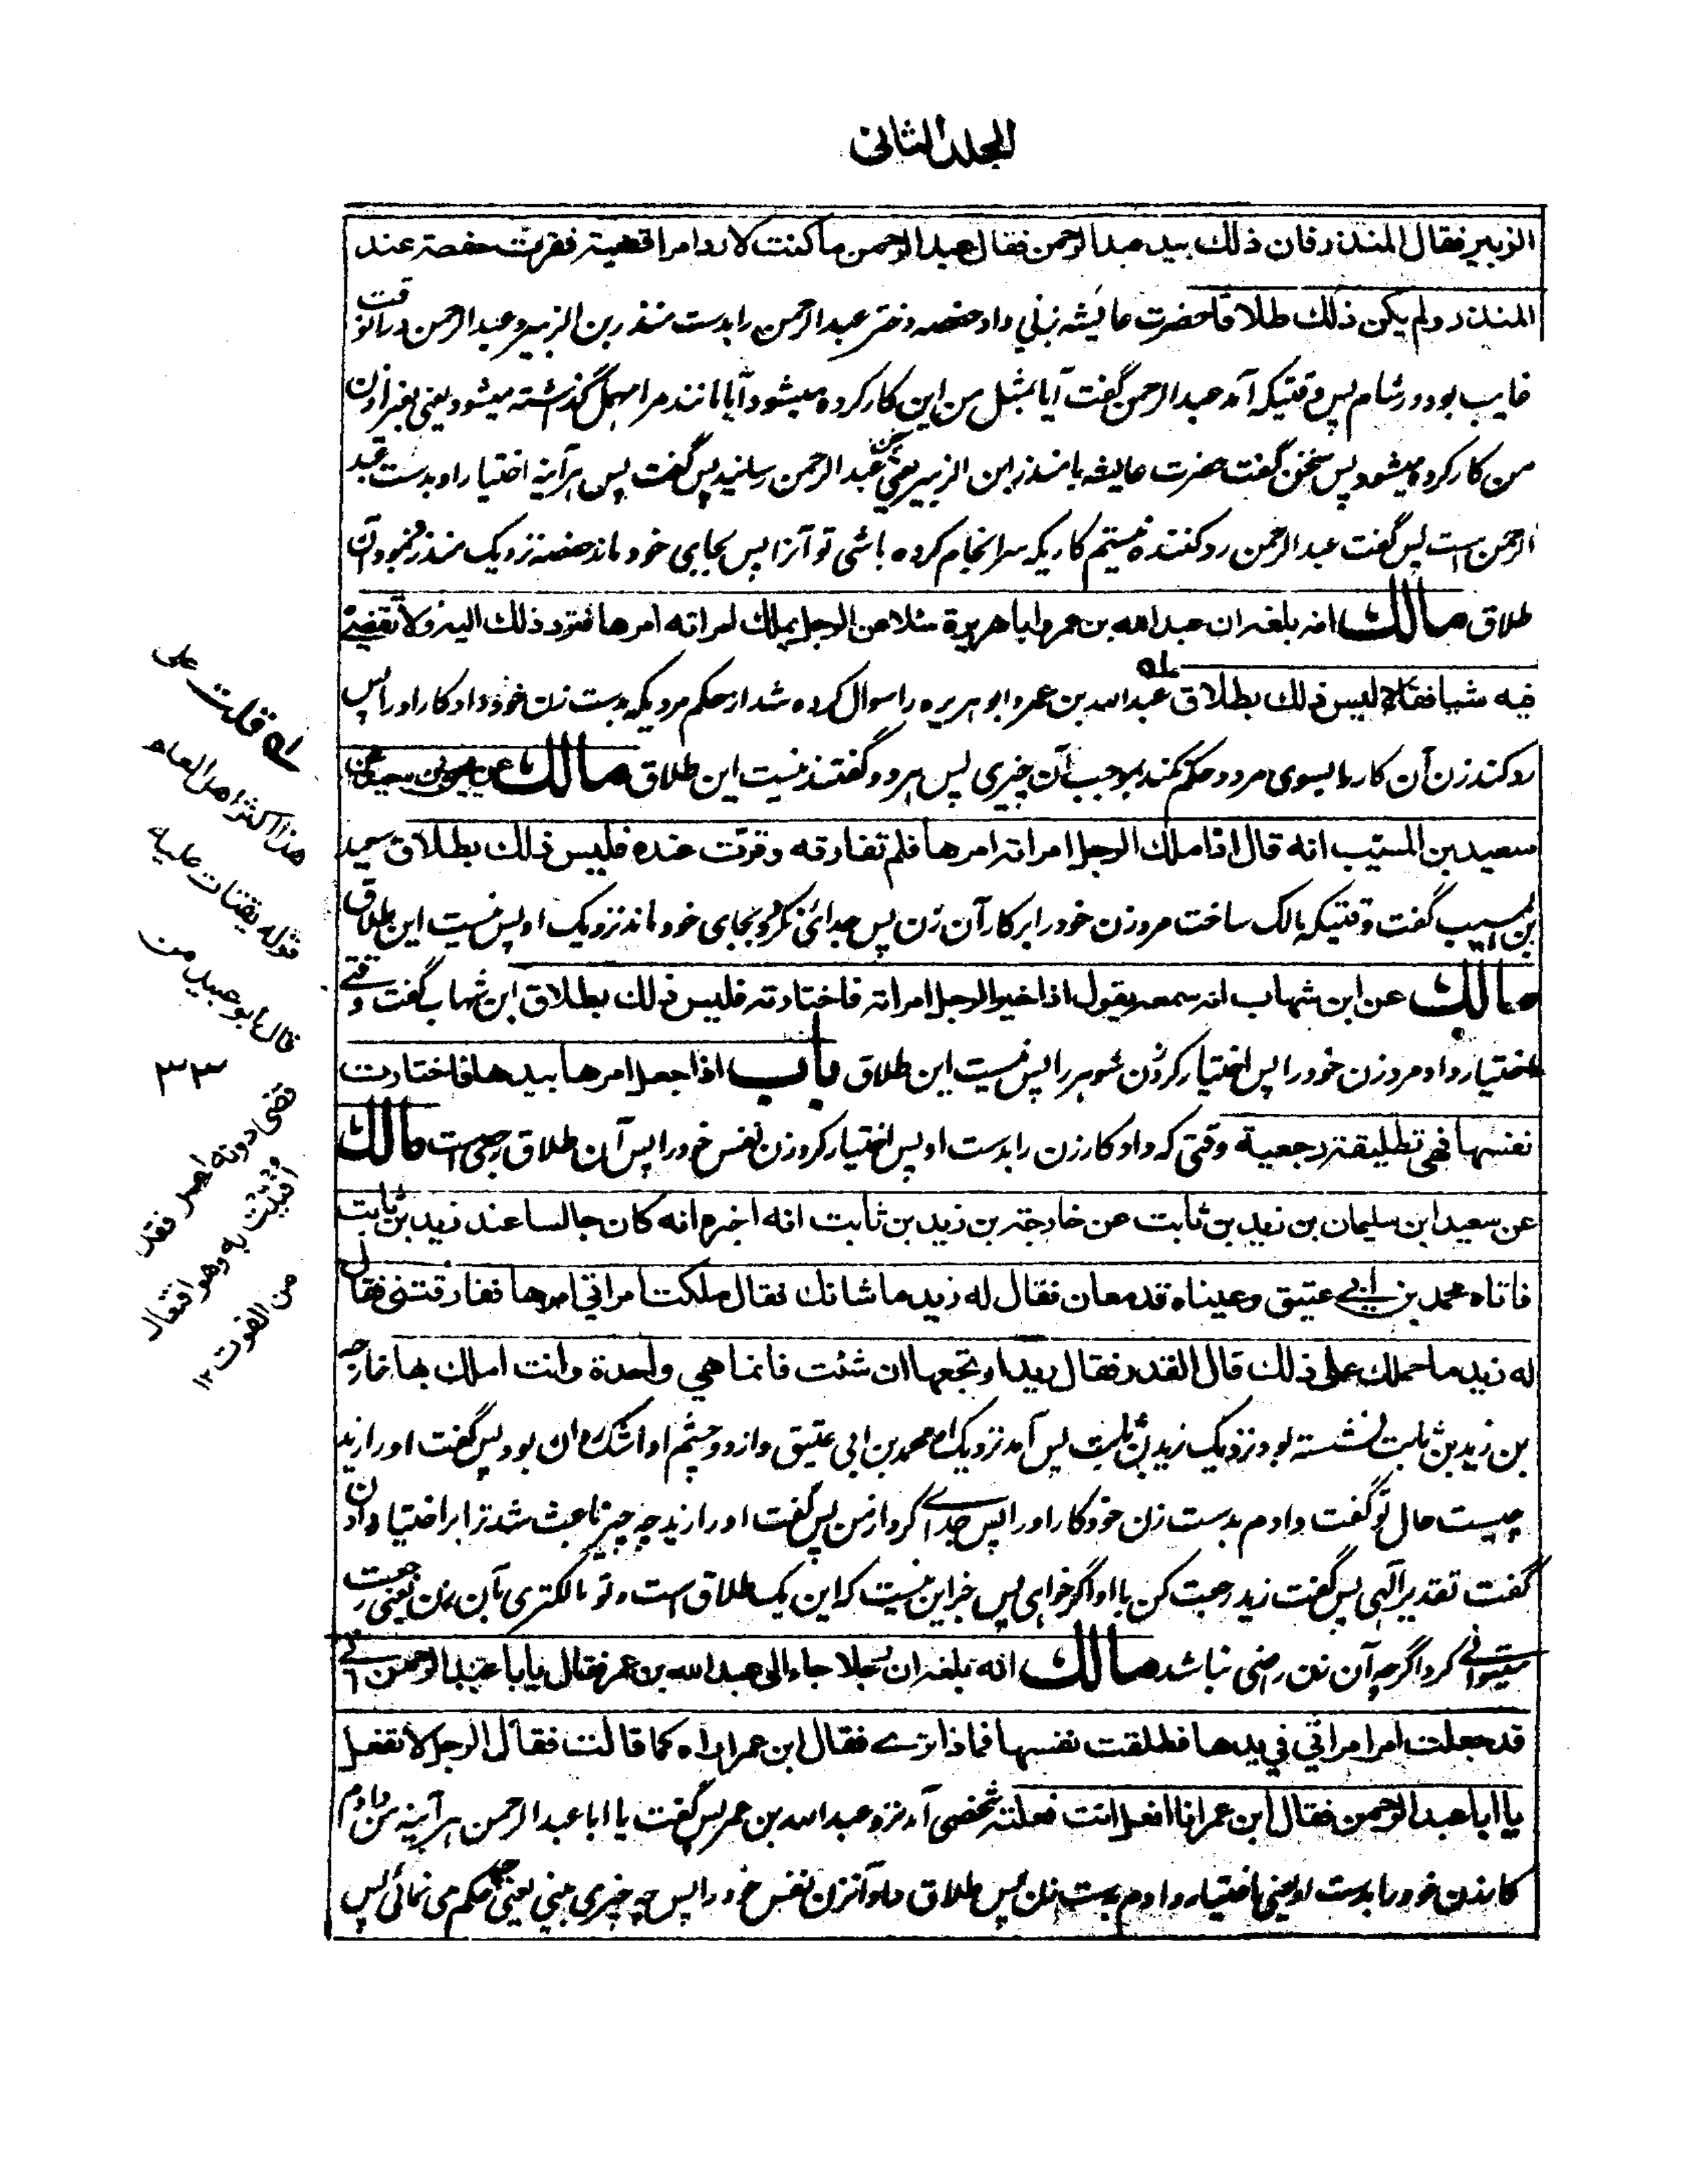 المجلد الثانی
الزبیر فقال المنذر فان ذلك بید عبد الرحمن فقال عبد الرحمن ما كنت لارد امرا قضیته فقرت حفصة عند
المنذر ولم یكن ذلك طلاقا حضرت عایشه بزنی داد حفصه دختر عبد الرحمن را بدست منذر بن الزبیر و عبد الرحمن در انوقت
غایب بود در شام پس وقتیکه آمد عبد الرحمن گفت آیا بمثل من این کار کرده میشود آیا مانند مرا مهمل گذشته میشود یعنی بغیر اذن
من کار کرده میشود پس سخن گفت حضرت عایشه با منذر ابن الزبیر یعنی سخن عبد الرحمن رسانید پس گفت پس هر آینه اختیار او بدست عبد
الرحمن است پس گفت عبد الرحمن رد کننده نیستم کاریکه سرانجام کرده باشی تو آنرا پس بجای خود ماند حفصه نزدیک منذر و نبود آن
طلاق مالك انه بلغه ان عبد الله بن عمر وابا هریرة سئلا عن الرجل یملك امراته امرها فترد ذلك الیه ولا تقضی
فیه شیا فقالا لیس ذلك بطلاق عبد الله بن عمر و ابو هریره را سوال کرده شد از حکم مردیکه بدست زن خود داد کار او را پس
رد کند زن آن کار را بسوی مرد و حکم نکند بموجب آن چیزی پس هر دو گفتند نیست این طلاق مالك عن یحیی بن سعید عن
سعید بن المسیّب انه قال اذا ملك الرجل امراته امرها فلم تفارقه وقرّت عنده فلیس ذلك بطلاق سعید
بن المسیب گفت وقتیکه مالک ساخت مرد زن خود را بر کار آن زن پس جدائی نکرد و بجای خود ماند نزدیک او پس نیست این طلاق
مالك عن ابن شهاب انه سمعه یقول اذا خیر الرجل امراته فاختارته فلیس ذلك بطلاق ابن شهاب گفت وقتی
اختیار داد مرد زن خود را پس اختیار کرد زن شوهر را پس نیست این طلاق باب اذا جعل امرها بیدها فاختارت
نفسها فهی تطلیقة رجعیة وقتی که داد کار زن را بدست او پس اختیار کرد زن نفس خود را پس آن طلاق رجعی است مالك
عن سعید ابن سلیمان بن زید بن ثابت عن خارجة بن زید بن ثابت انه اخبره انه كان جالسا عند زید بن ثابت
فاتاه محمد بن ابی عتیق وعیناه تدمعان فقال له زید ما شانك فقال ملكت امراتی امرها ففارقتنی فقال
له زید ما حملك علی ذلك قال القدر فقال زید ارتجعها ان شئت فانما هی واحدة وانت املك بها خارجه
بن زید بن ثابت نشسته بود نزدیک زید بن ثابت پس آمد نزدیک او محمد بن ابی عتیق و از دو چشم او اشک روان بود پس گفت او را زید
چیست حال تو گفت دادم بدست زن خود کار او را پس جدائی کرد از من پس گفت او را زید چه چیز باعث شد ترا بر اختیار دادن
گفت تقدیر آلهی پس گفت زید رجعت کن با او اگر خواهی پس جز این نیست که این یک طلاق است و تو مالکتری بآن زن یعنی رجعت
میتوانی کرد اگرچه آن زن راضی نباشد مالك انه بلغه ان رجلا جاء الی عبد الله بن عمر فقال یا ابا عبد الرحمن انی
قد جعلت امر امراتی فی یدها فطلقت نفسها فماذا تری فقال ابن عمر اراه كما قالت فقال الرجل لا تفعل
یا ابا عبد الرحمن فقال ابن عمر انا افعل انت فعلته شخصی آمد نزد عبد الله بن عمر پس گفت یا ابا عبد الرحمن هر آینه من دادم
کار زن خود را بدست او یعنی اختیار دادم بدست زن پس طلاق داد آنزن نفس خود را پس چه چیزی بینی یعنی چه حکم می نمائی پس
قلت علی
هذا اكثر اهل العلم
قوله یفتات علیه
قال ابو عبید من
قضی دونه امر فقد
افتیت به وهو افتعال
من الفوت ۱۲